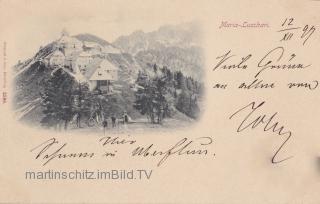 Maria-Luschari.
12/XII 97
Viele Grüße
an alle von
Hier
Schnee in Überfluss.
martinschitz.imBild.TV